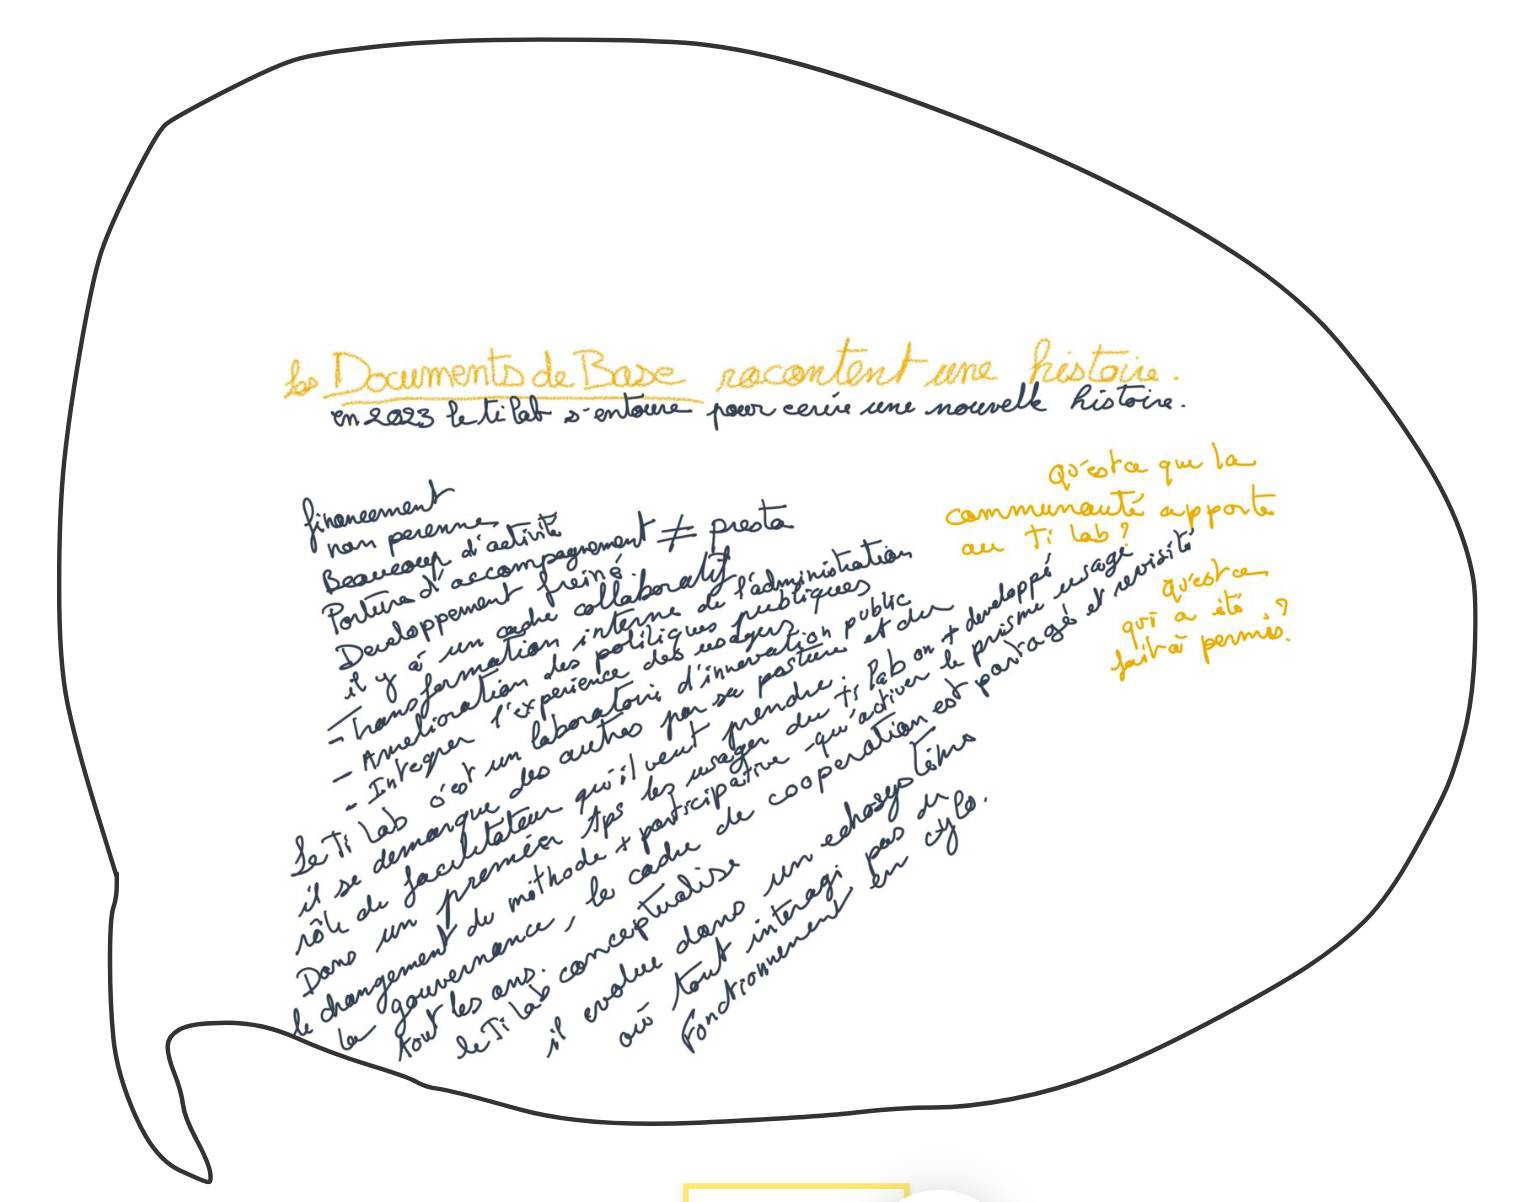 les Documents de Base racontent une histoire.
en 2023 le ti lab s'entoure pour cerire une nouvelle histoire.
financement
non perenne
Beaucoup d'activité
Porture d'accompagnement ≠ presta
Developpement freiné.
il y a un cadre collaboratif
- Transformation interne de l'administration
- Amelioration des politiques publiques
- Integrer l'experience des usagers
Le Ti Lab c'est un laboratoire d'innovation public
il se demarque des autres par sa posture et du
rôle de facilitateur qu'il veut prendre.
Dans un premier tps les usager du ti lab on + developpé
le changement de méthode + participative - qu'activer le prisme usage
la gouvernance, le cadre de cooperation est partagé et revisité
tout les ans.
le Ti Lab conceptualise
il evolue dans un echosystème
où tout interagi pas de
Fonctionnement en cylo.
qu'est ce que la
communauté apporte
au Ti lab?
qu'est ce
qui a été
fait à permis.?